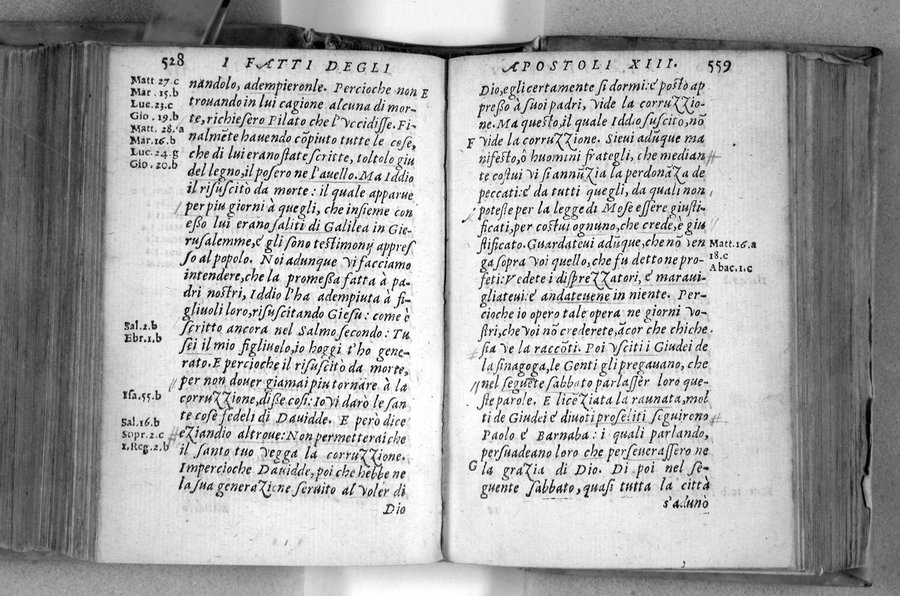 528
I FATTI DEGLI
Matt 27.c
Mar. 15.b
Luc. 23.c
Gio. 19.b
Matt. 28.a
Mar. 16.b
Luc. 24.g
Gio. 20.b
Sal. 2.b
Ebr. 1.b
Isa. 55.b
Sal. 16.b
Sopr. 2.c
1. Reg. 2.b
nandolo, adempieronle. Percioche non E
trouando in lui cagione alcuna di mor-
te, richiesero Pilato che l'vccidisse. Fi-
nalmēte hauendo cōpiuto tutte le cose,
che di lui erano state scritte, toltolo giu
del legno, il posero ne l'auello. Ma Iddio
il risuscitò da morte: il quale apparue
per piu giorni à quegli, che insieme con
esso lui erano saliti di Galilea in Gie-
rusalemme, é gli sono testimonij appres
so al popolo. Noi adunque vi facciamo
intendere, che la promessa fatta à pa-
dri nostri, Iddio l'ha adempiuta à fi-
gliuoli loro, risuscitando Giesu: come è
scritto ancora nel Salmo secondo: Tu
sei il mio figliuolo, io hoggi t'ho gene-
rato. E percioche il risuscitò da morte,
per non douer giamai piu tornare à la
corruzzione, disse così: Io vi darò le san
te cose fedeli di Dauidde. E però dice
eziandio altroue: Non permetterai che
il santo tuo vegga la corruzzione.
Impercioche Dauidde, poi che hebbe ne
la sua generazione seruito al voler di
Dio
APOSTOLI XIII.
559
Dio, egli certamente si dormì: é posto ap
presso à suoi padri, vide la corruzzio-
ne. Ma questo, il quale Iddio suscitò, nō
F vide la corruzzione. Sieui adūque ma
nifesto, ò huomini frategli, che median-
te costui vi s'annūzia la perdonāza de
peccati: é da tutti quegli, da quali non
poteste per la legge di Mose essere giusti-
ficati, per costui ognuno, che crede, è giu
stificato. Guardateui adūque, che nō ven
ga sopra voi quello, che fu detto ne pro-
feti: Vedete i disprezzatori, é maraui-
gliateui: é andateuene in niente. Per-
cioche io opero tale opera ne giorni vo-
stri, che voi nō crederete, ācor che chiche
sia ve la raccōti. Poi vsciti i Giudei de
la sinagoga, le Genti gli pregauano, che
nel seguēte sabbato parlasser loro que-
ste parole. E licēziata la raunata, mol
ti de Giudei é diuoti proseliti seguirono
Paolo é Barnaba: i quali parlando,
persuadeano loro che perseuerassero ne
G la grazia di Dio. Di poi nel se-
guente sabbato, quasi tutta la città
s'adunò
Matt. 16.a
18.c
Abac. 1.c